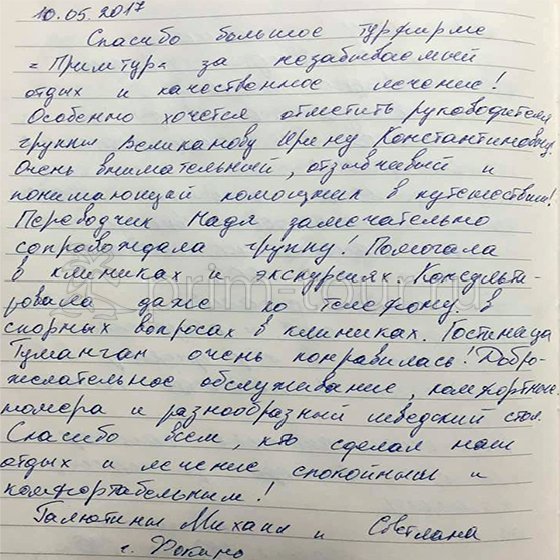 10.05.2017
Спасибо большое турфирме
"Примтур" за незабываемый
отдых и качественное лечение!
Особенно хочется отметить руководителя
группы Великанову Ирину Константиновну.
Очень внимательный, отзывчивый и
понимающий помощник в путешествии!
Переводчик Надя замечательно
сопровождала группу! Помогала
в клиниках и экскурсиях. Консульти-
ровала даже по телефону в
спорных вопросах в клиниках. Гостиница
Туманган очень понравилась! Добро-
желательное обслуживание, комфортные
номера и разнообразный шведский стол.
Спасибо всем, кто сделал наш
отдых и лечение спокойным и
комфортабельным!
Галютины Михаил и Светлана
г. Фокино
prim-tour.ru